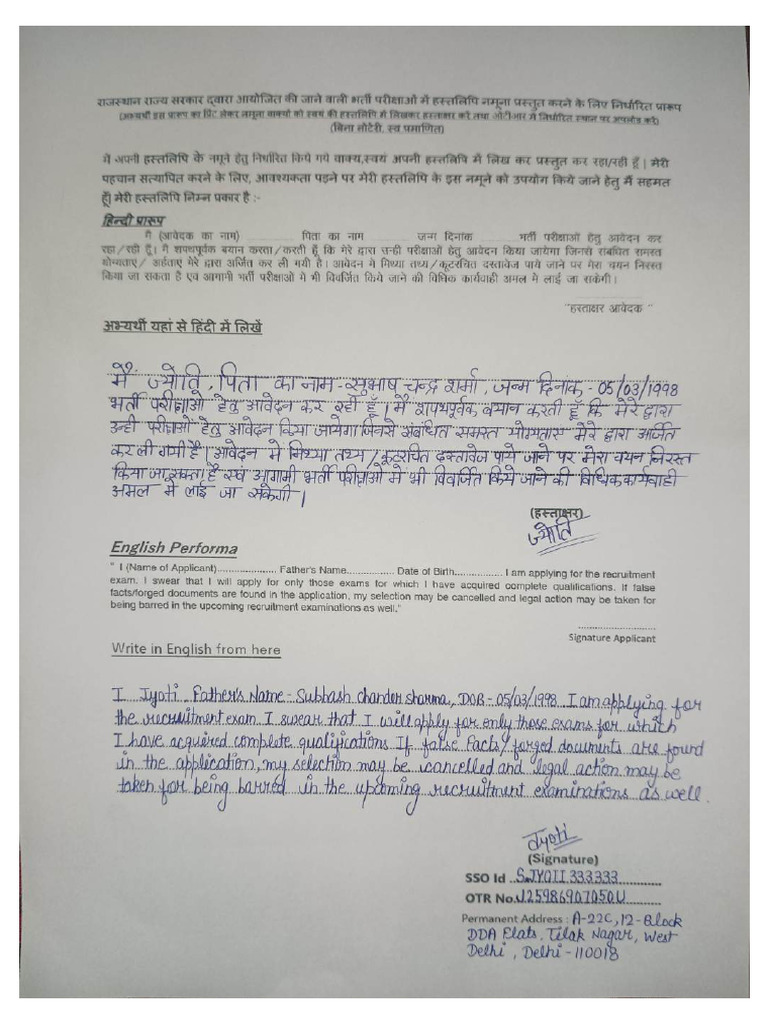 राजस्थान राज्य सरकार द्वारा आयोजित की जाने वाली भर्ती परीक्षाओं में हस्तलिपि नमूना प्रस्तुत करने के लिए निर्धारित प्रारूप
(अभ्यर्थी इस प्रारूप का प्रिंट लेकर नमूना वाक्यों को स्वयं की हस्तलिपि में लिखकर हस्ताक्षर करें तथा ओटीआर में निर्धारित स्थान पर अपलोड करें)
(बिना नोटेरी, स्व प्रमाणित)
मैं अपनी हस्तलिपि के नमूने हेतु निर्धारित किये गये वाक्य,स्वयं अपनी हस्तलिपि में लिख कर प्रस्तुत कर रहा/रही हूँ | मेरी
पहचान सत्यापित करने के लिए, आवश्यकता पड़ने पर मेरी हस्तलिपि के इस नमूने को उपयोग किये जाने हेतु मैं सहमत
हूँ| मेरी हस्तलिपि निम्न प्रकार है :-
हिन्दी प्रारूप
मै (आवेदक का नाम) .................... पिता का नाम ............... जन्म दिनांक ............ भर्ती परीक्षाओं हेतु आवेदन कर
रहा/रही हूँ। मै शपथपूर्वक बयान करता/करती हूँ कि मेरे द्वारा उन्ही परीक्षाओं हेतु आवेदन किया जायेगा जिनसे संबंधित समस्त
योग्यताएं/ अर्हताए मेरे द्वारा अर्जित कर ली गयी है। आवेदन मे मिथ्या तथ्य/कूटरचित दस्तावेज पाये जाने पर मेरा चयन निरस्त
किया जा सकता है एवं आगामी भर्ती परीक्षाओं मे भी विवर्जित किये जाने की विधिक कार्यवाही अमल मे लाई जा सकेगी।
"हस्ताक्षर आवेदक "
अभ्यर्थी यहां से हिंदी में लिखें
मैं ज्योति, पिता का नाम - सुभाष चन्द्र शर्मा, जन्म दिनांक - 05/03/1998
भर्ती परीक्षाओं हेतु आवेदन कर रही हूँ। मैं शपथपूर्वक बयान करती हूँ कि मेरे द्वारा
उन्ही परीक्षाओं हेतु आवेदन किया जायेगा जिनसे संबंधित समस्त योग्यताएं मेरे द्वारा अर्जित
कर ली गयी है। आवेदन मे मिथ्या तथ्य/कूटरचित दस्तावेज पाये जाने पर मेरा चयन निरस्त
किया जा सकता है एवं आगामी भर्ती परीक्षाओं मे भी विवर्जित किये जाने की विधिक कार्यवाही
अमल मे लाई जा सकेगी।
(हस्ताक्षर)
ज्योति
English Performa
" I (Name of Applicant)..................... Father's Name................. Date of Birth................ I am applying for the recruitment
exam. I swear that I will apply for only those exams for which I have acquired complete qualifications. If false
facts/forged documents are found in the application, my selection may be cancelled and legal action may be taken for
being barred in the upcoming recruitment examinations as well."
Signature Applicant
Write in English from here
I Jyoti, Father's Name - Subhash Chander Sharma, DOB - 05/03/1998. I am applying for
the recruitment exam. I swear that I will apply for only those exams for which
I have acquired complete qualifications. If false facts/forged documents are found
in the application, my selection may be cancelled and legal action may be
taken for being barred in the upcoming recruitment examinations as well.
Jyoti
(Signature)
SSO Id ..SJYOTI333333............
OTR No.J25986907050U..........
Permanent Address : A-22C, 12-Block
DDA Flats, Tilak Nagar, West
Delhi, Delhi - 110018